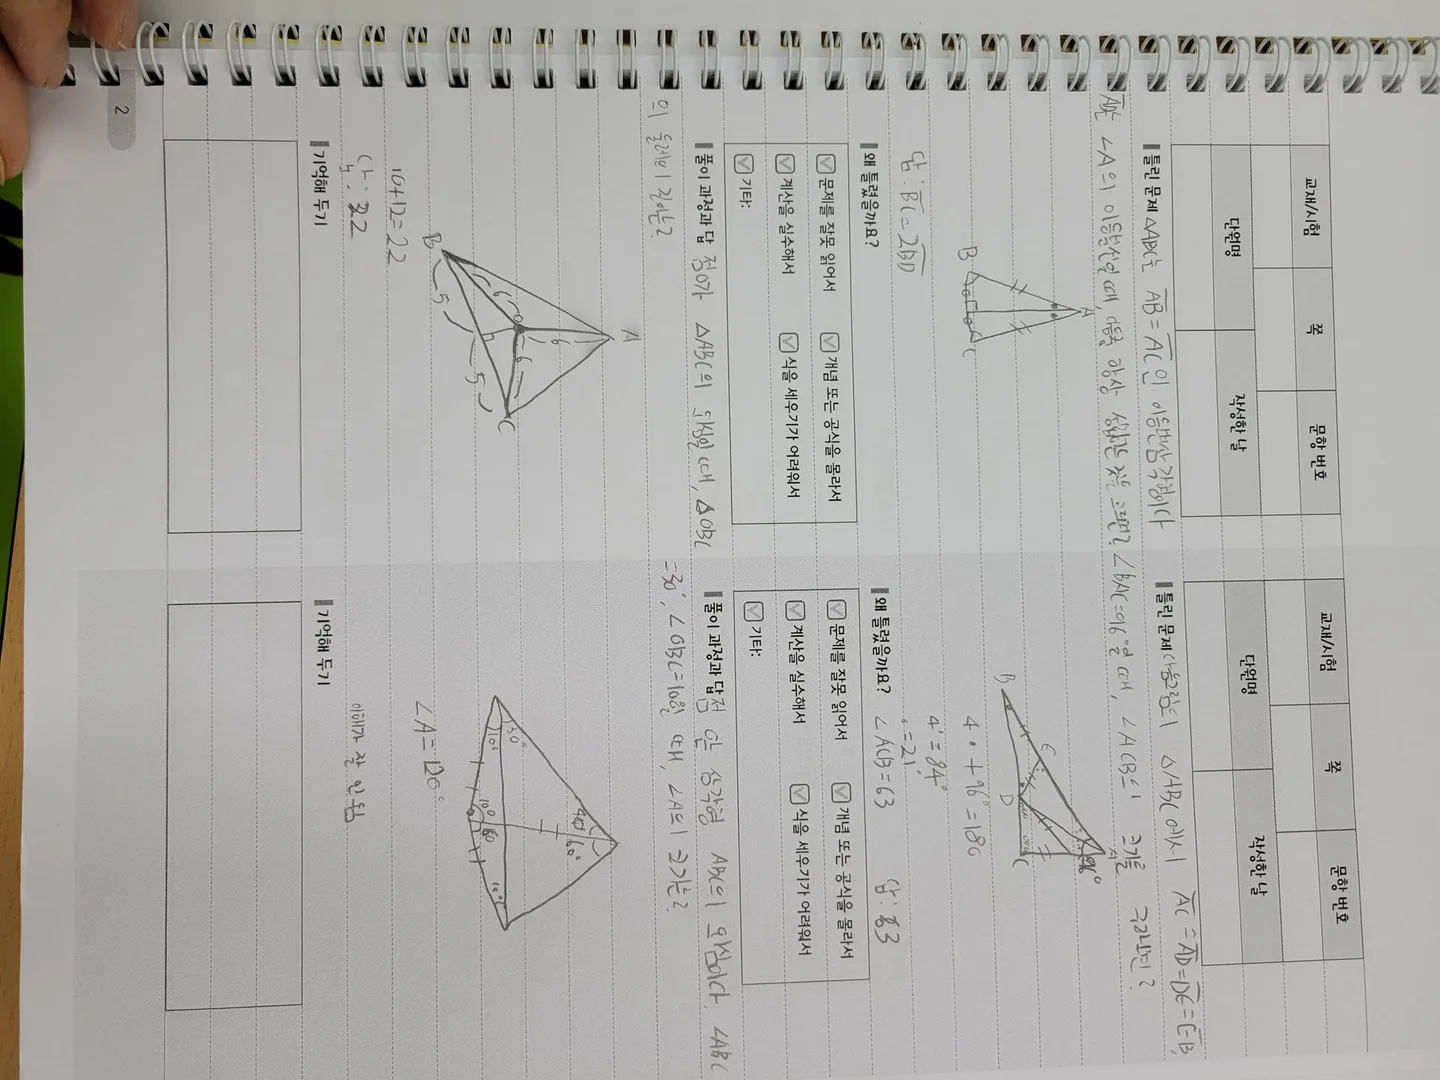 교재/시험
쪽
문항 번호
단원명
작성한 날
틀린 문제 △ABC는 AB=AC인 이등변삼각형이다
∠A의 이등분선일 때, 다음 중 항상 고르면?
A
B
C
답: BC=2BD
왜 틀렸을까요?
문제를 잘못 읽어서
개념 또는 공식을 몰라서
계산을 실수해서
식을 세우기가 어려워서
기타:
풀이 과정과 답 점O가 △ABC의 외심일 때, △OBC
의 둘레의 길이는?
A
O
6
6
6
B
5
5
C
10+12=22
답: 22
기억해 두기
2
교재/시험
쪽
문항 번호
단원명
작성한 날
틀린 문제 다음 그림의 △ABC에서 AC=AD=DE=EB,
∠BAC=96°일 때, ∠ACB의 크기를 구하면?
B
E
D
C
96°
4•+96°=180
4•=84°
•=21°
∠ACB=63
답: 63
왜 틀렸을까요?
문제를 잘못 읽어서
개념 또는 공식을 몰라서
계산을 실수해서
식을 세우기가 어려워서
기타:
풀이 과정과 답 점 O은 삼각형 ABC의 외심이다. ∠ABC
=30°, ∠OBC=10일 때, ∠A의 크기는?
30°
10°
60°
10°
∠A=120°
이해가 잘 안됨
기억해 두기